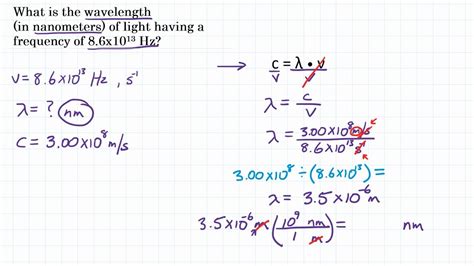 What is the wavelength
(in nanometers) of light having a
frequency of 8.6x10¹³ Hz?
ν = 8.6x10¹³ Hz , s⁻¹
λ = ? nm
c = 3.00x10⁸ m/s
→ c/ν = λ • ν/ν
λ = c/ν
λ = 3.00x10⁸ m/s / 8.6x10¹³ s⁻¹
3.00x10⁸ ÷ (8.6x10¹³) =
λ = 3.5x10⁻⁶ m
3.5x10⁻⁶ m (10⁹ nm / 1 m) = nm